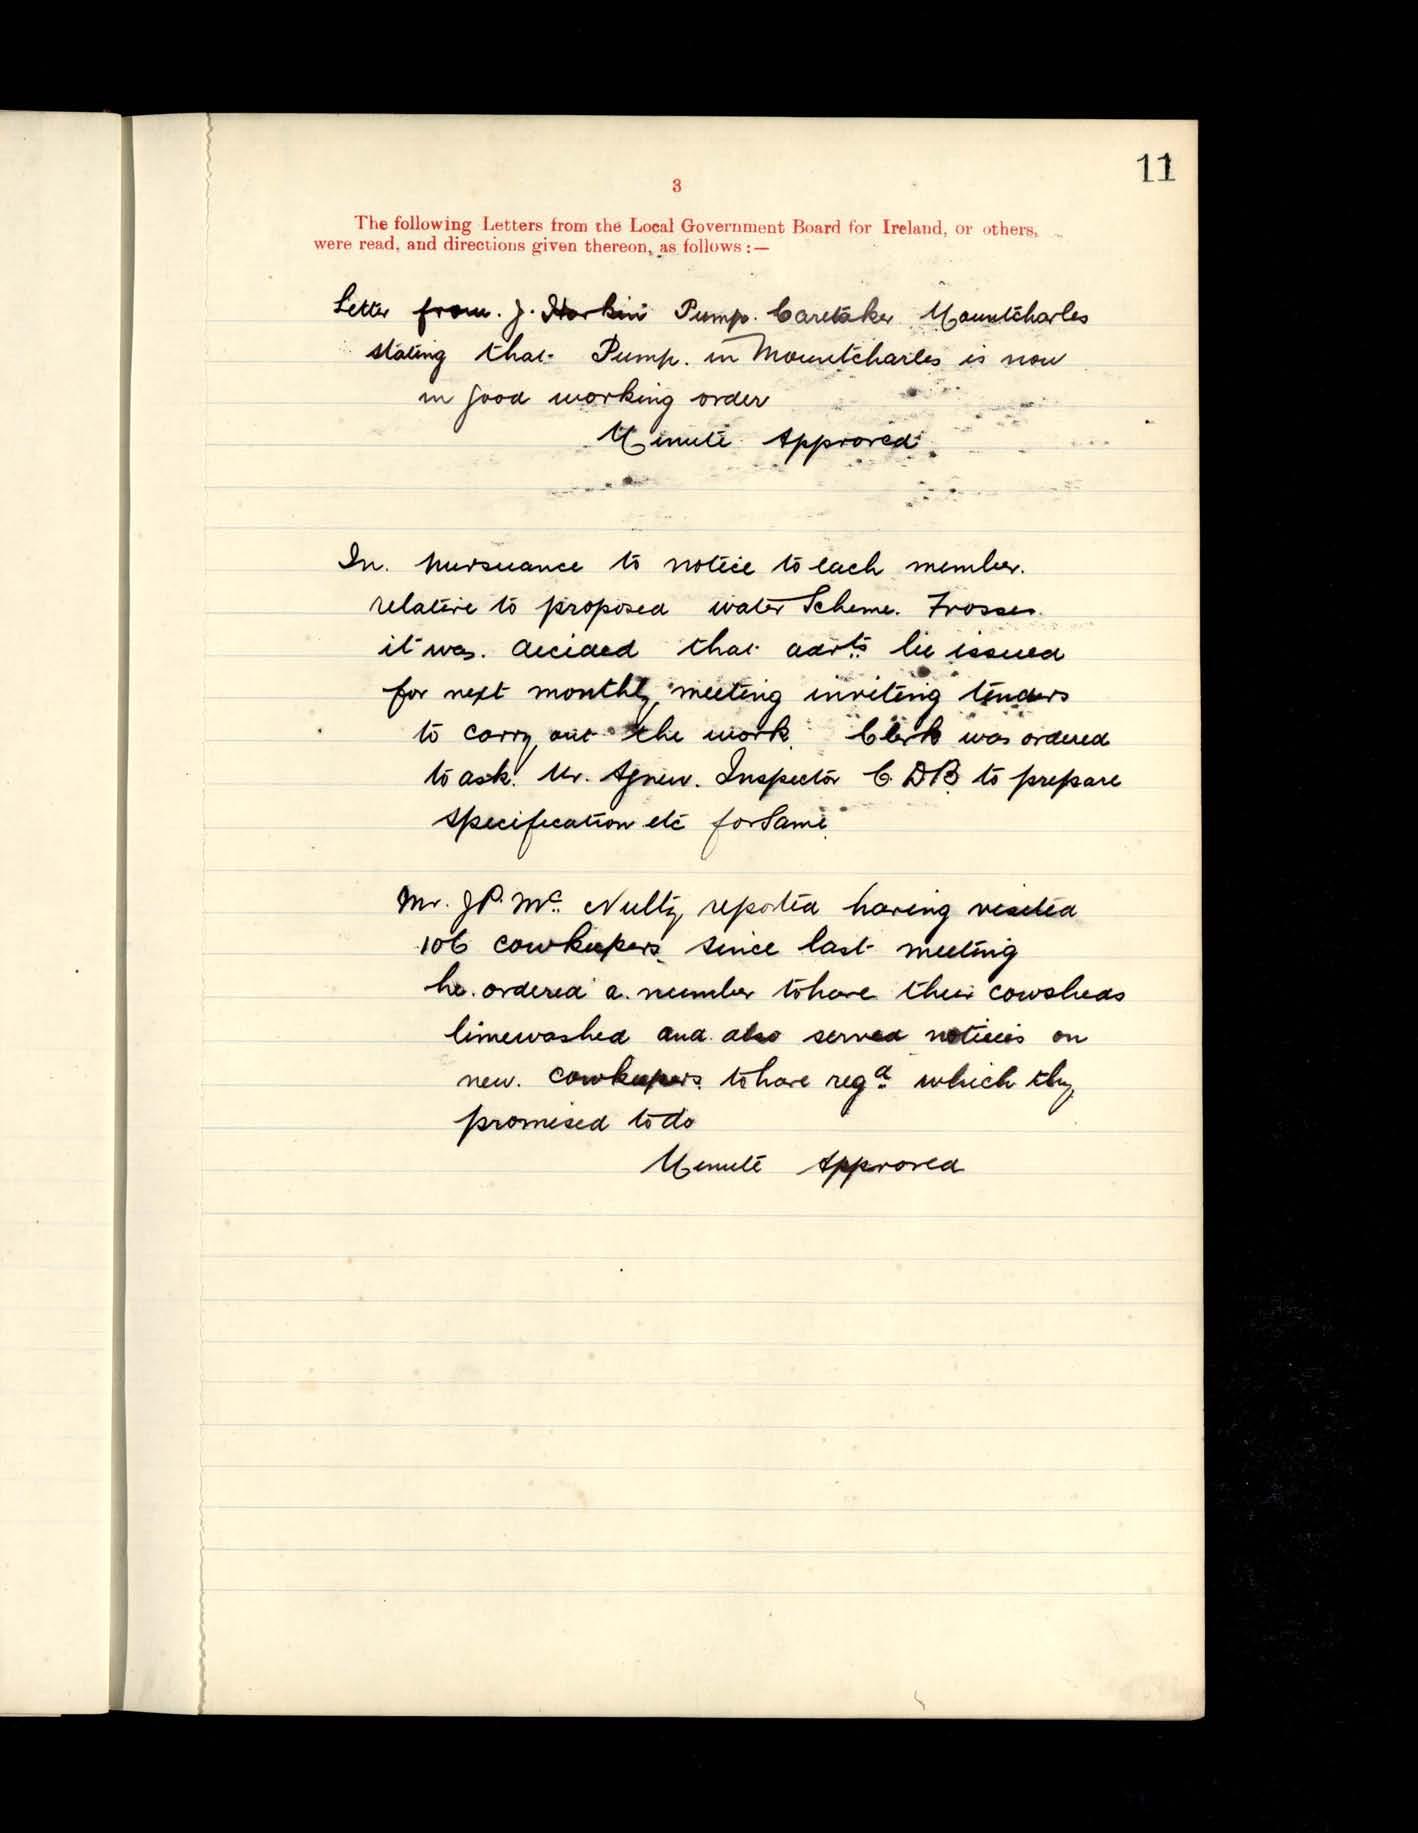 11
3
The following Letters from the Local Government Board for Ireland, or others,
were read, and directions given thereon, as follows :—
Letter from. J. Harkin Pump. Caretaker Mountcharles
stating that Pump. in Mountcharles is now
in good working order
Minute Approved
In. pursuance to notice to each member.
relative to proposed water Scheme. Frosses.
it was. decided that advts be issued
for next monthly meeting inviting tenders
to carry out the work. Clerk was ordered
to ask. Mr. Agnew. Inspector C. D B. to prepare
specification etc for Same.
Mr. J P. Mc. Nulty reported having visited
106 cowkeepers since last meeting
he. ordered a. number to have their cowsheds
limewashed and also served notices on
new. cowkeepers to have regd which they
promised to do
Minute Approved